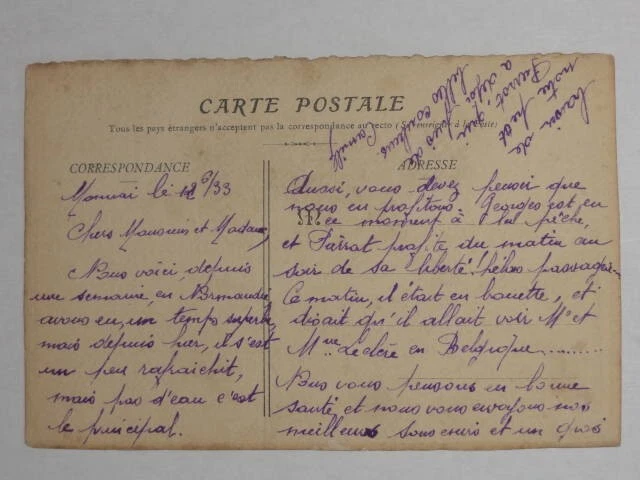 CARTE POSTALE
Tous les pays étrangers n'acceptent pas la correspondance au recto (Se renseigner à la Poste)
CORRESPONDANCE
ADRESSE
M
le 12/6/33
Chers Monsieur et Madame,
Nous voici, depuis
une semaine, en Normandie,
avons eu, un temps superbe
mais depuis hier, il s'est
un peu rafraichit,
mais pas d'eau c'est
le principal.
Aussi, vous devez penser que
nous en profitons. Georges est en
ce moment à la pêche,
et Pârrat profite du matin au
soir de sa liberté! hélas passagère.
Ce matin, il était en brouette, et
disait qu'il allait voir Mr et
Mme Leclère en Belgique ..........
Nous vous pensons en bonne
santé, et nous vous envoyons nos
meilleurs souvenirs et un gros
baiser de
notre petit
qui a déjà pris de
belles couleurs.